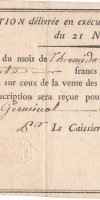 TION délivrée en exécu
du 21 N
du mois de Thermido
francs
sur ceux de la vente des
scription sera reçue pour
Germinal
Le Caissier